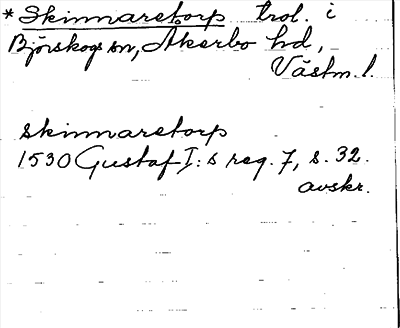 * Skinnaretorp trol. i
Björskogs sn, Åkerbo hd,
Västm. l.
skinnaretorp
1530 Gustaf I:s reg. 7, s. 32.
avskr.